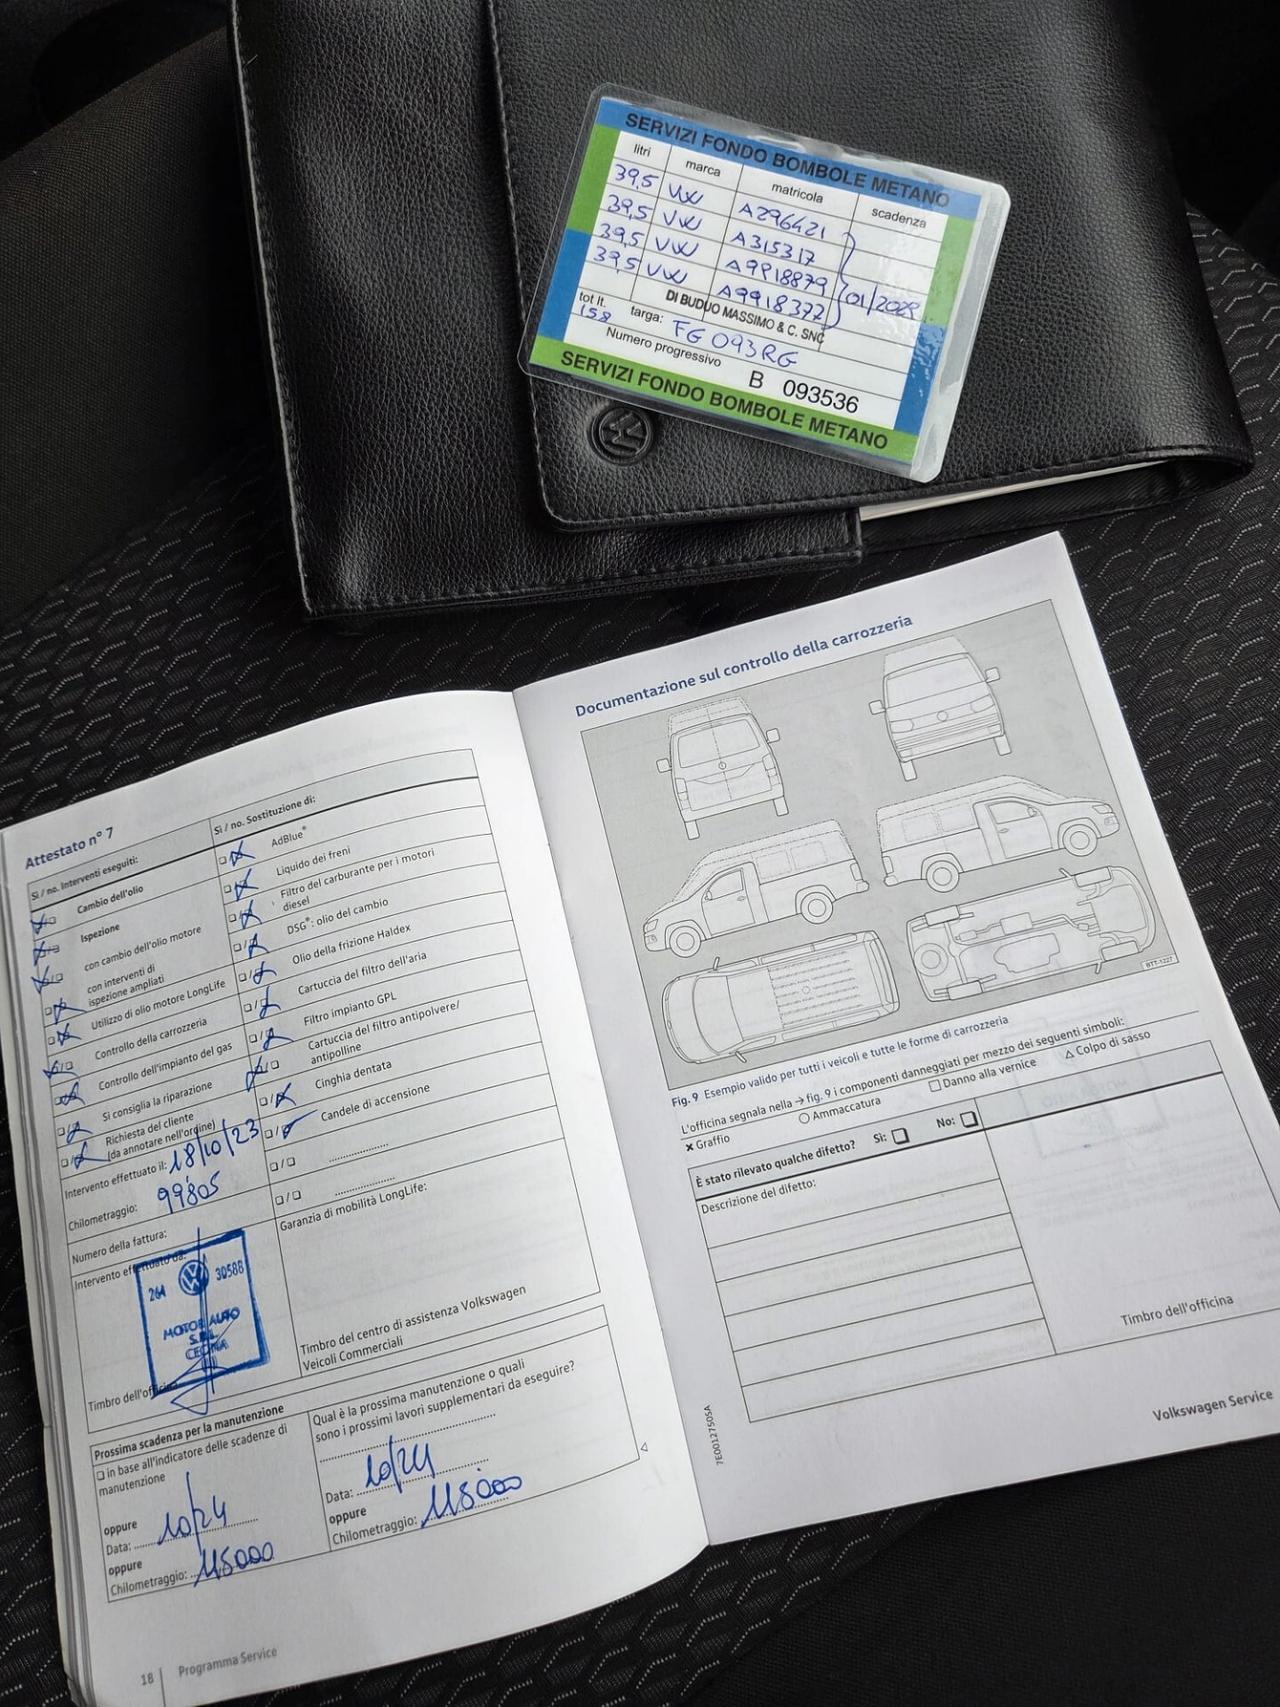 SERVIZI FONDO BOMBOLE METANO
litri marca matricola scadenza
39,5 VW A296421
39,5 VW A315317
39,5 VW A9918879
39,5 VW A9918377 01/2028
DI BUDUO MASSIMO & C. SNC
tot lt. 158 targa: FG 093RG
Numero progressivo B 093536
SERVIZI FONDO BOMBOLE METANO
Attestato n° 7
Sì / no. Interventi eseguiti:
Cambio dell'olio
Ispezione
con cambio dell'olio motore
con interventi di
ispezione ampliati
Utilizzo di olio motore LongLife
Controllo della carrozzeria
Controllo dell'impianto del gas
Si consiglia la riparazione
Richiesta del cliente
(da annotare nell'ordine)
Intervento effettuato il: 18/10/23
Chilometraggio: 99805
Numero della fattura:
Intervento effettuato da:
264 30588
MOTOR AUTO
S.R.L.
CECINA
Timbro dell'officina
Sì / no. Sostituzione di:
AdBlue®
Liquido dei freni
Filtro del carburante per i motori
diesel
DSG®: olio del cambio
Olio della frizione Haldex
Cartuccia del filtro dell'aria
Filtro impianto GPL
Cartuccia del filtro antipolvere/
antipolline
Cinghia dentata
Candele di accensione
Garanzia di mobilità LongLife:
Timbro del centro di assistenza Volkswagen
Veicoli Commerciali
Prossima scadenza per la manutenzione
in base all'indicatore delle scadenze di
manutenzione
oppure
Data: 10/24
oppure
Chilometraggio: 115000
Qual è la prossima manutenzione o quali
sono i prossimi lavori supplementari da eseguire?
Data: 10/24
oppure
Chilometraggio: 115000
18 Programma Service
Documentazione sul controllo della carrozzeria
BTT-1227
Fig. 9 Esempio valido per tutti i veicoli e tutte le forme di carrozzeria
L'officina segnala nella → fig. 9 i componenti danneggiati per mezzo dei seguenti simboli:
✘ Graffio ○ Ammaccatura □ Danno alla vernice △ Colpo di sasso
È stato rilevato qualche difetto? Sì: No:
Descrizione del difetto:
Timbro dell'officina
7E0012750SA
Volkswagen Service